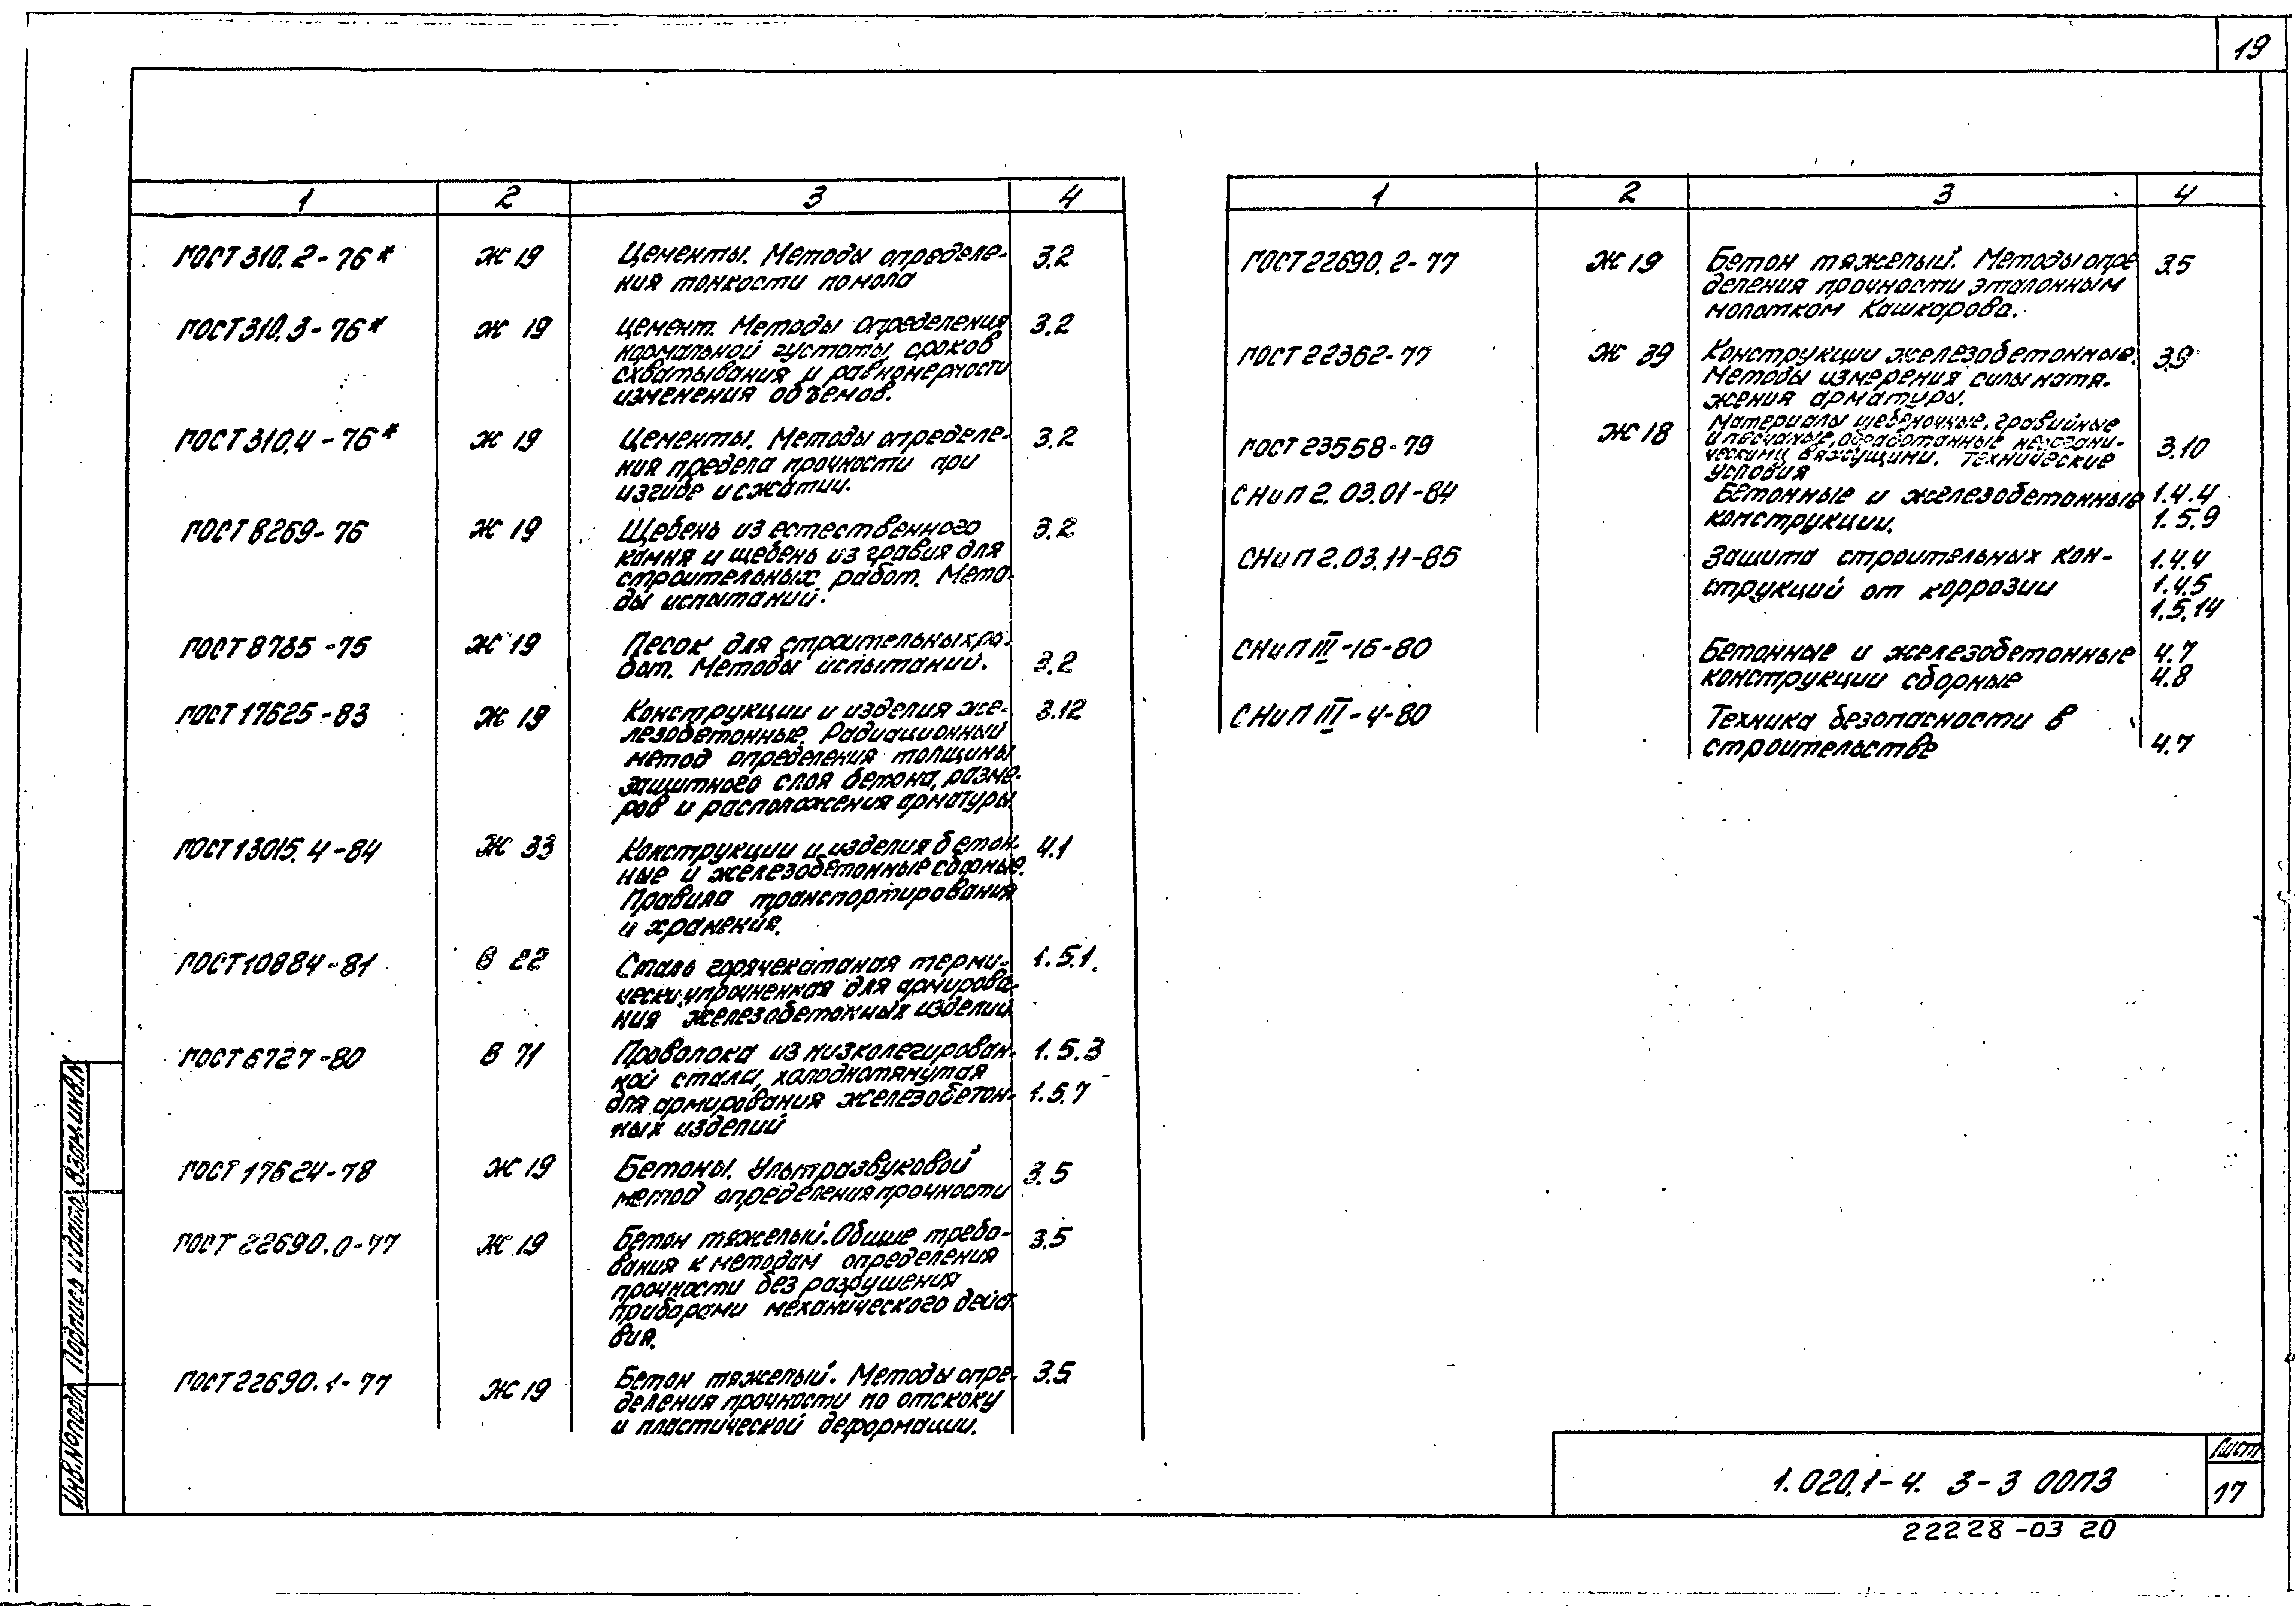 19
1 2 3 4
ГОСТ 310.2-76* Ж 19 Цементы. Методы определе- 3.2
ния тонкости помола
ГОСТ 310.3-76* Ж 19 Цемент. Методы определения 3.2
нормальной густоты, сроков
схватывания и равномерности
изменения объемов.
ГОСТ 310.4-76* Ж 19 Цементы. Методы определе- 3.2
ния предела прочности при
изгибе и сжатии.
ГОСТ 8269-76 Ж 19 Щебень из естественного 3.2
камня и щебень из гравия для
строительных работ. Мето-
ды испытаний.
ГОСТ 8735-75 Ж 19 Песок для строительных ра-
бот. Методы испытаний. 3.2
ГОСТ 17625-83 Ж 19 Конструкции и изделия же- 3.12
лезобетонные. Радиационный
метод определения толщины
защитного слоя бетона, разме-
ров и расположения арматуры.
ГОСТ 13015.4-84 Ж 33 Конструкции и изделия бетон- 4.1
ные и железобетонные сборные.
Правила транспортирования
и хранения.
ГОСТ 10884-81 В 22 Сталь горячекатаная терми- 1.5.1.
чески упрочненная для армирова-
ния железобетонных изделий
ГОСТ 6727-80 В 71 Проволока из низколегирован- 1.5.3
ной стали, холоднотянутая
для армирования железобетон- 1.5.7
ных изделий
ГОСТ 17624-78 Ж 19 Бетоны. Ультразвуковой 3.5
метод определения прочности
ГОСТ 22690.0-77 Ж 19 Бетон тяжелый. Общие требо- 3.5
вания к методам определения
прочности без разрушения
приборами механического дейст
вия.
ГОСТ 22690.1-77 Ж 19 Бетон тяжелый. Методы опре- 3.5
деления прочности по отскоку
и пластической деформации.
1 2 3 4
ГОСТ 22690.2-77 Ж 19 Бетон тяжелый. Методы опре 3.5
деления прочности эталонным
молотком Кашкарова.
ГОСТ 22362-77 Ж 39 Конструкции железобетонные. 3.9
Методы измерения силы натя-
жения арматуры.
Материалы щебеночные, гравийные
ГОСТ 23558-79 Ж 18 и песчаные, обработанные неоргани- 3.10
ческими вяжущими. Технические
условия
СНиП 2.03.01-84 Бетонные и железобетонные 1.4.4
конструкции. 1.5.9
СНиП 2.03.11-85 Защита строительных кон- 1.4.4
струкций от коррозии 1.4.5
1.5.14
СНиП III-16-80 Бетонные и железобетонные 4.7
конструкции сборные 4.8
СНиП III-4-80 Техника безопасности в
строительстве 4.7
Инв.№ подл. Подпись и дата Взам.инв.№
1.020.1-4. 3-3 00ПЗ
Лист
17
22228-03 20